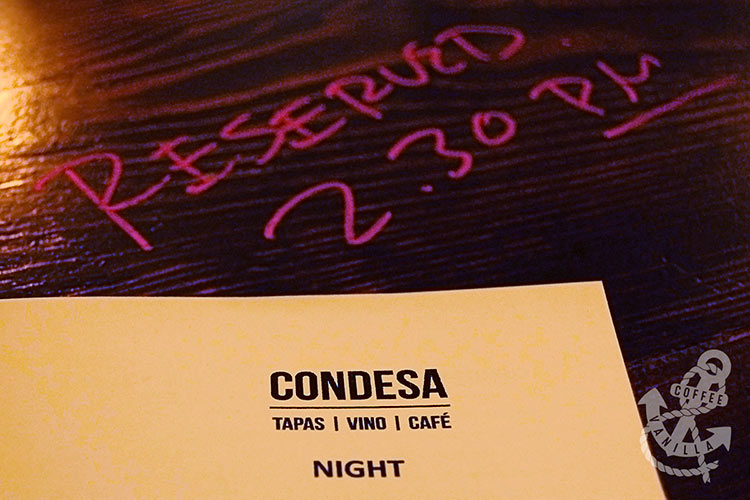 RESERVED.
2.30 PM
CONDESA
TAPAS | VINO | CAFÉ
NIGHT
COFFEE
VANILLA